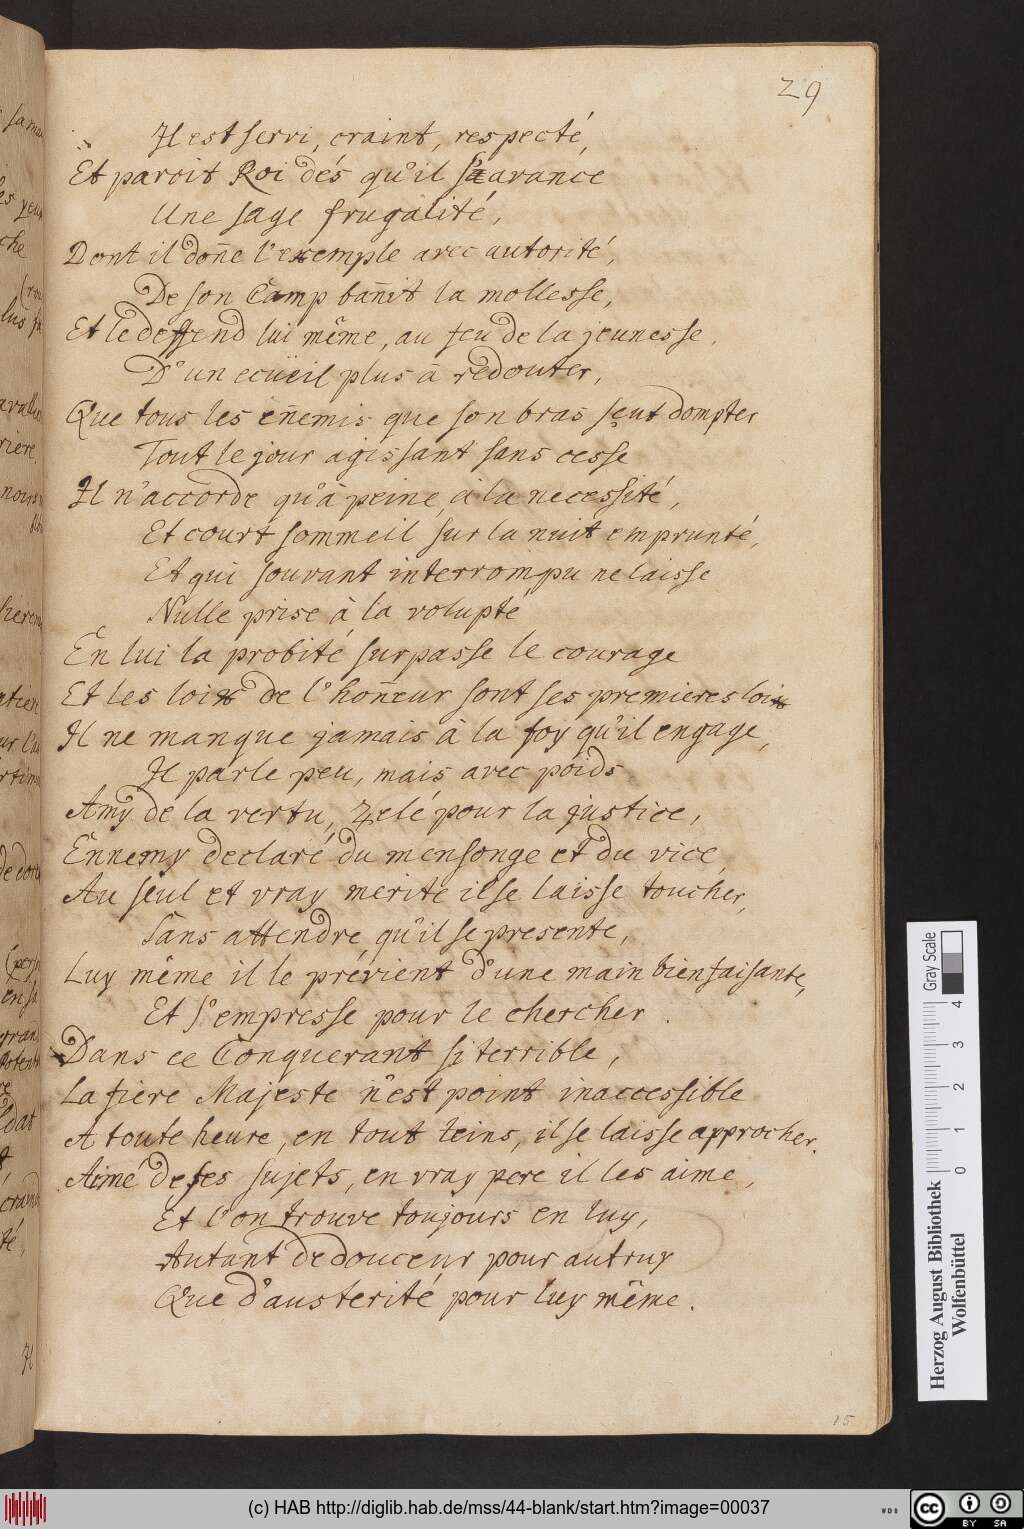 29
Il est servi, craint, respecté,
Et paroit Roi dés qu'il s'avance
Une sage frugalité,
Dont il doñe l'exemple avec autorité,
De son Camp bañit la mollesse,
Et le deffend lui même, au feu de la jeunesse.
D'un ecüeil plus à redouter,
Que tous les eñemis que son bras sçut dompter
Tout le jour agissant sans cesse
Il n'accorde qu'à peine, à la necessité,
Et court sommeil sur la nuit emprunté,
Et qui souvant interrompu ne laisse
Nulle prise à la volupté
En lui la probité surpasse le courage
Et les loix de l'hoñeur sont ses premieres loix
Il ne manque jamais à la foy qu'il engage,
Il parle peu, mais avec poids
Amy de la vertu, zelé pour la justice,
Ennemy declaré du mensonge et du vice,
Au seul et vray merite il se laisse toucher,
Sans attendre qu'il se presente,
Luy même il le prévient d'une main bienfaisante,
Et s'empresse pour le chercher.
Dans ce Conquerant si terrible,
La fiere Majeste n'est point inaccessible
A toute heure, en tout teins, il se laisse approcher.
Aimé de ses sujets, en vray pere il les aime,
Et l'on trouve toujours en luy,
Autant de douceur pour autruy
Que d'austerité pour luy même.
15
Herzog August Bibliothek
Wolfenbüttel
Gray Scale
0 1 2 3 4
(c) HAB http://diglib.hab.de/mss/44-blank/start.htm?image=00037
WDB
cc BY SA